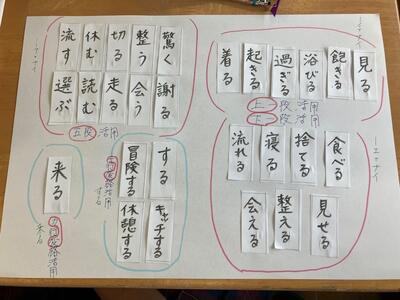 ーイ・ナイ
見る
飽きる
浴びる
過ぎる
起きる
着る
上一段活用
下一段活用
ーエ・ナイ
食べる
捨てる
寝る
流れる
見せる
整える
会える
ーア・ナイ
驚く
整う
切る
休む
流す
謝る
会う
走る
読む
選ぶ
五段活用
する
冒険する
キャッチする
休憩する
サ行変格活用
する
来る
カ行変格活用
来る